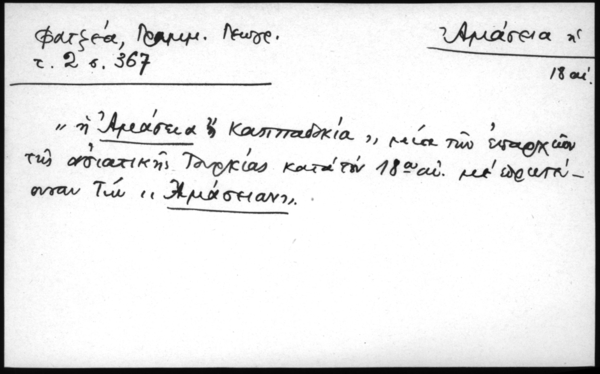 Φατζέα, Γραμμ. Γεωγρ.
τ. 2 σ. 367
Ἀμάσεια ἡ
18 αἰ.
„ ἡ Ἀμάσεια ἢ Καππαδοκία „, μία τῶν ἐπαρχιῶν
τῆς ἀσιατικῆς Τουρκίας κατὰ τὸν 18ον αἰ. μὲ πρωτεύ-
ουσαν τὴν „ Ἀμάσειαν „.